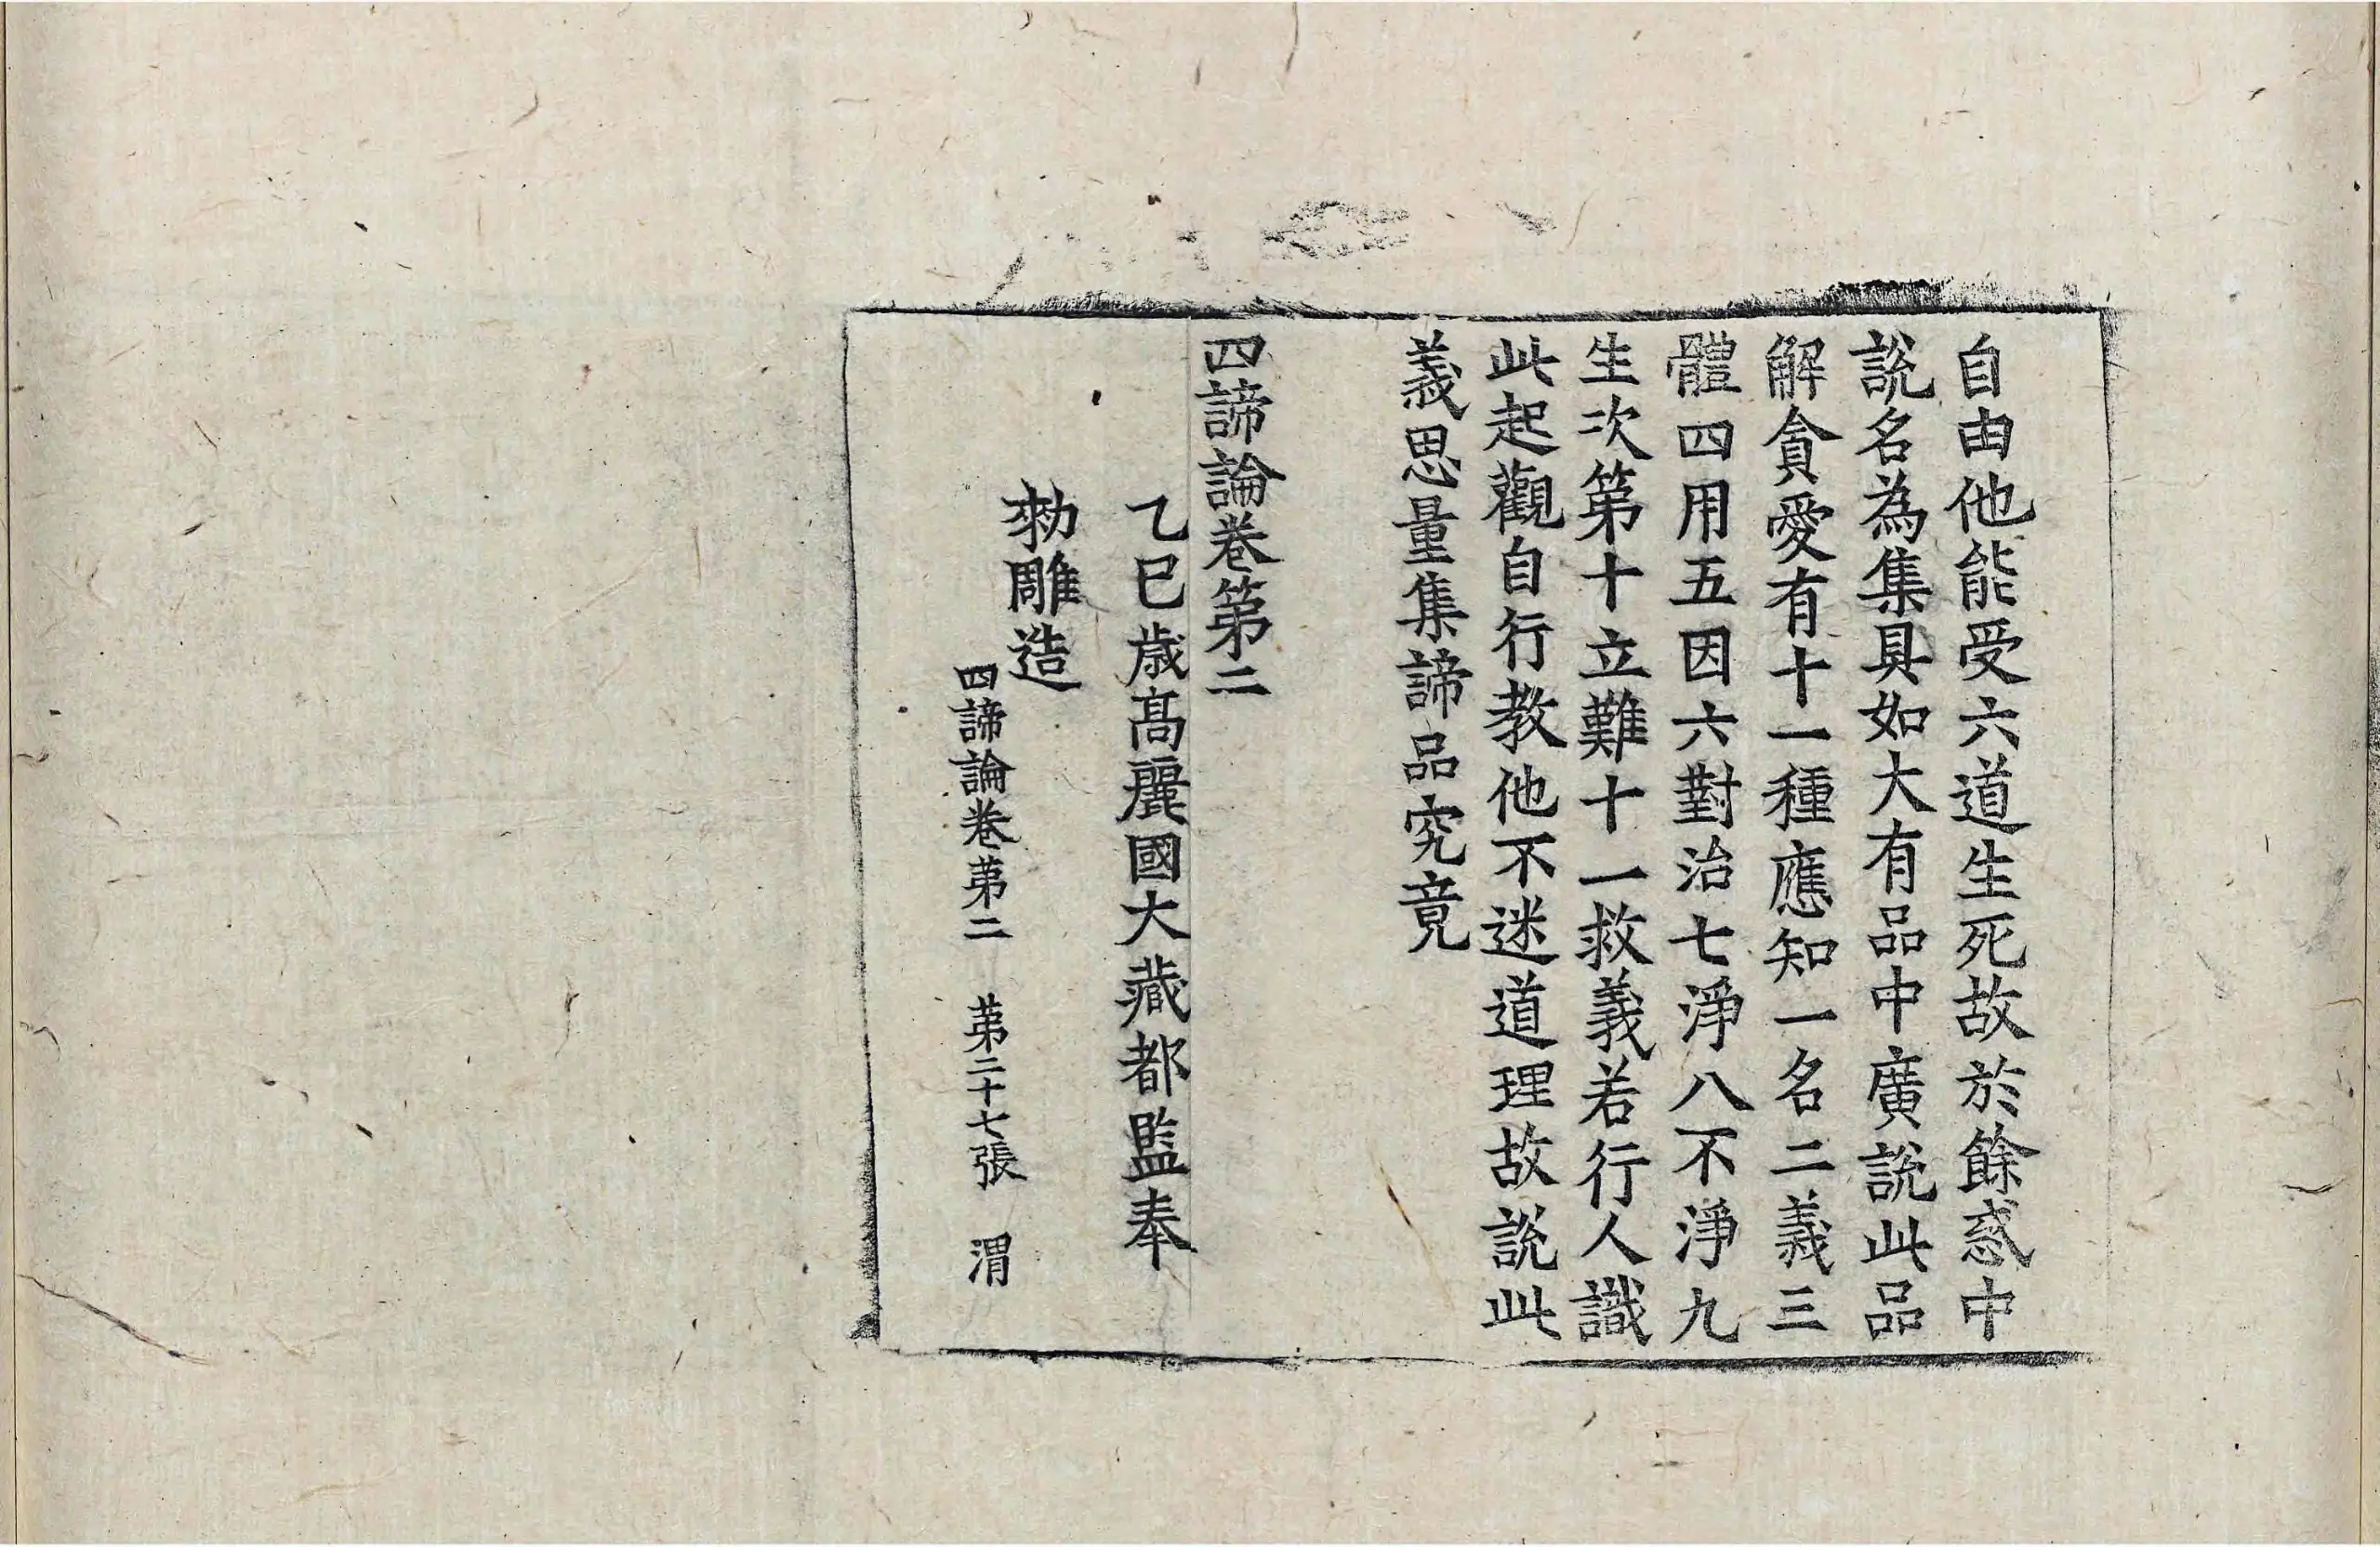 自由他能受六道生死故於餘惑中
說名為集具如大有品中廣說此品
解貪愛有十一種應知一名二義三
體四用五因六對治七淨八不淨九
生次第十立難十一救義若行人識
此起觀自行教他不迷道理故說此
義思量集諦品究竟
四諦論卷第二
乙巳歲高麗國大藏都監奉
勑雕造
四諦論卷第二 第二十七張 渭